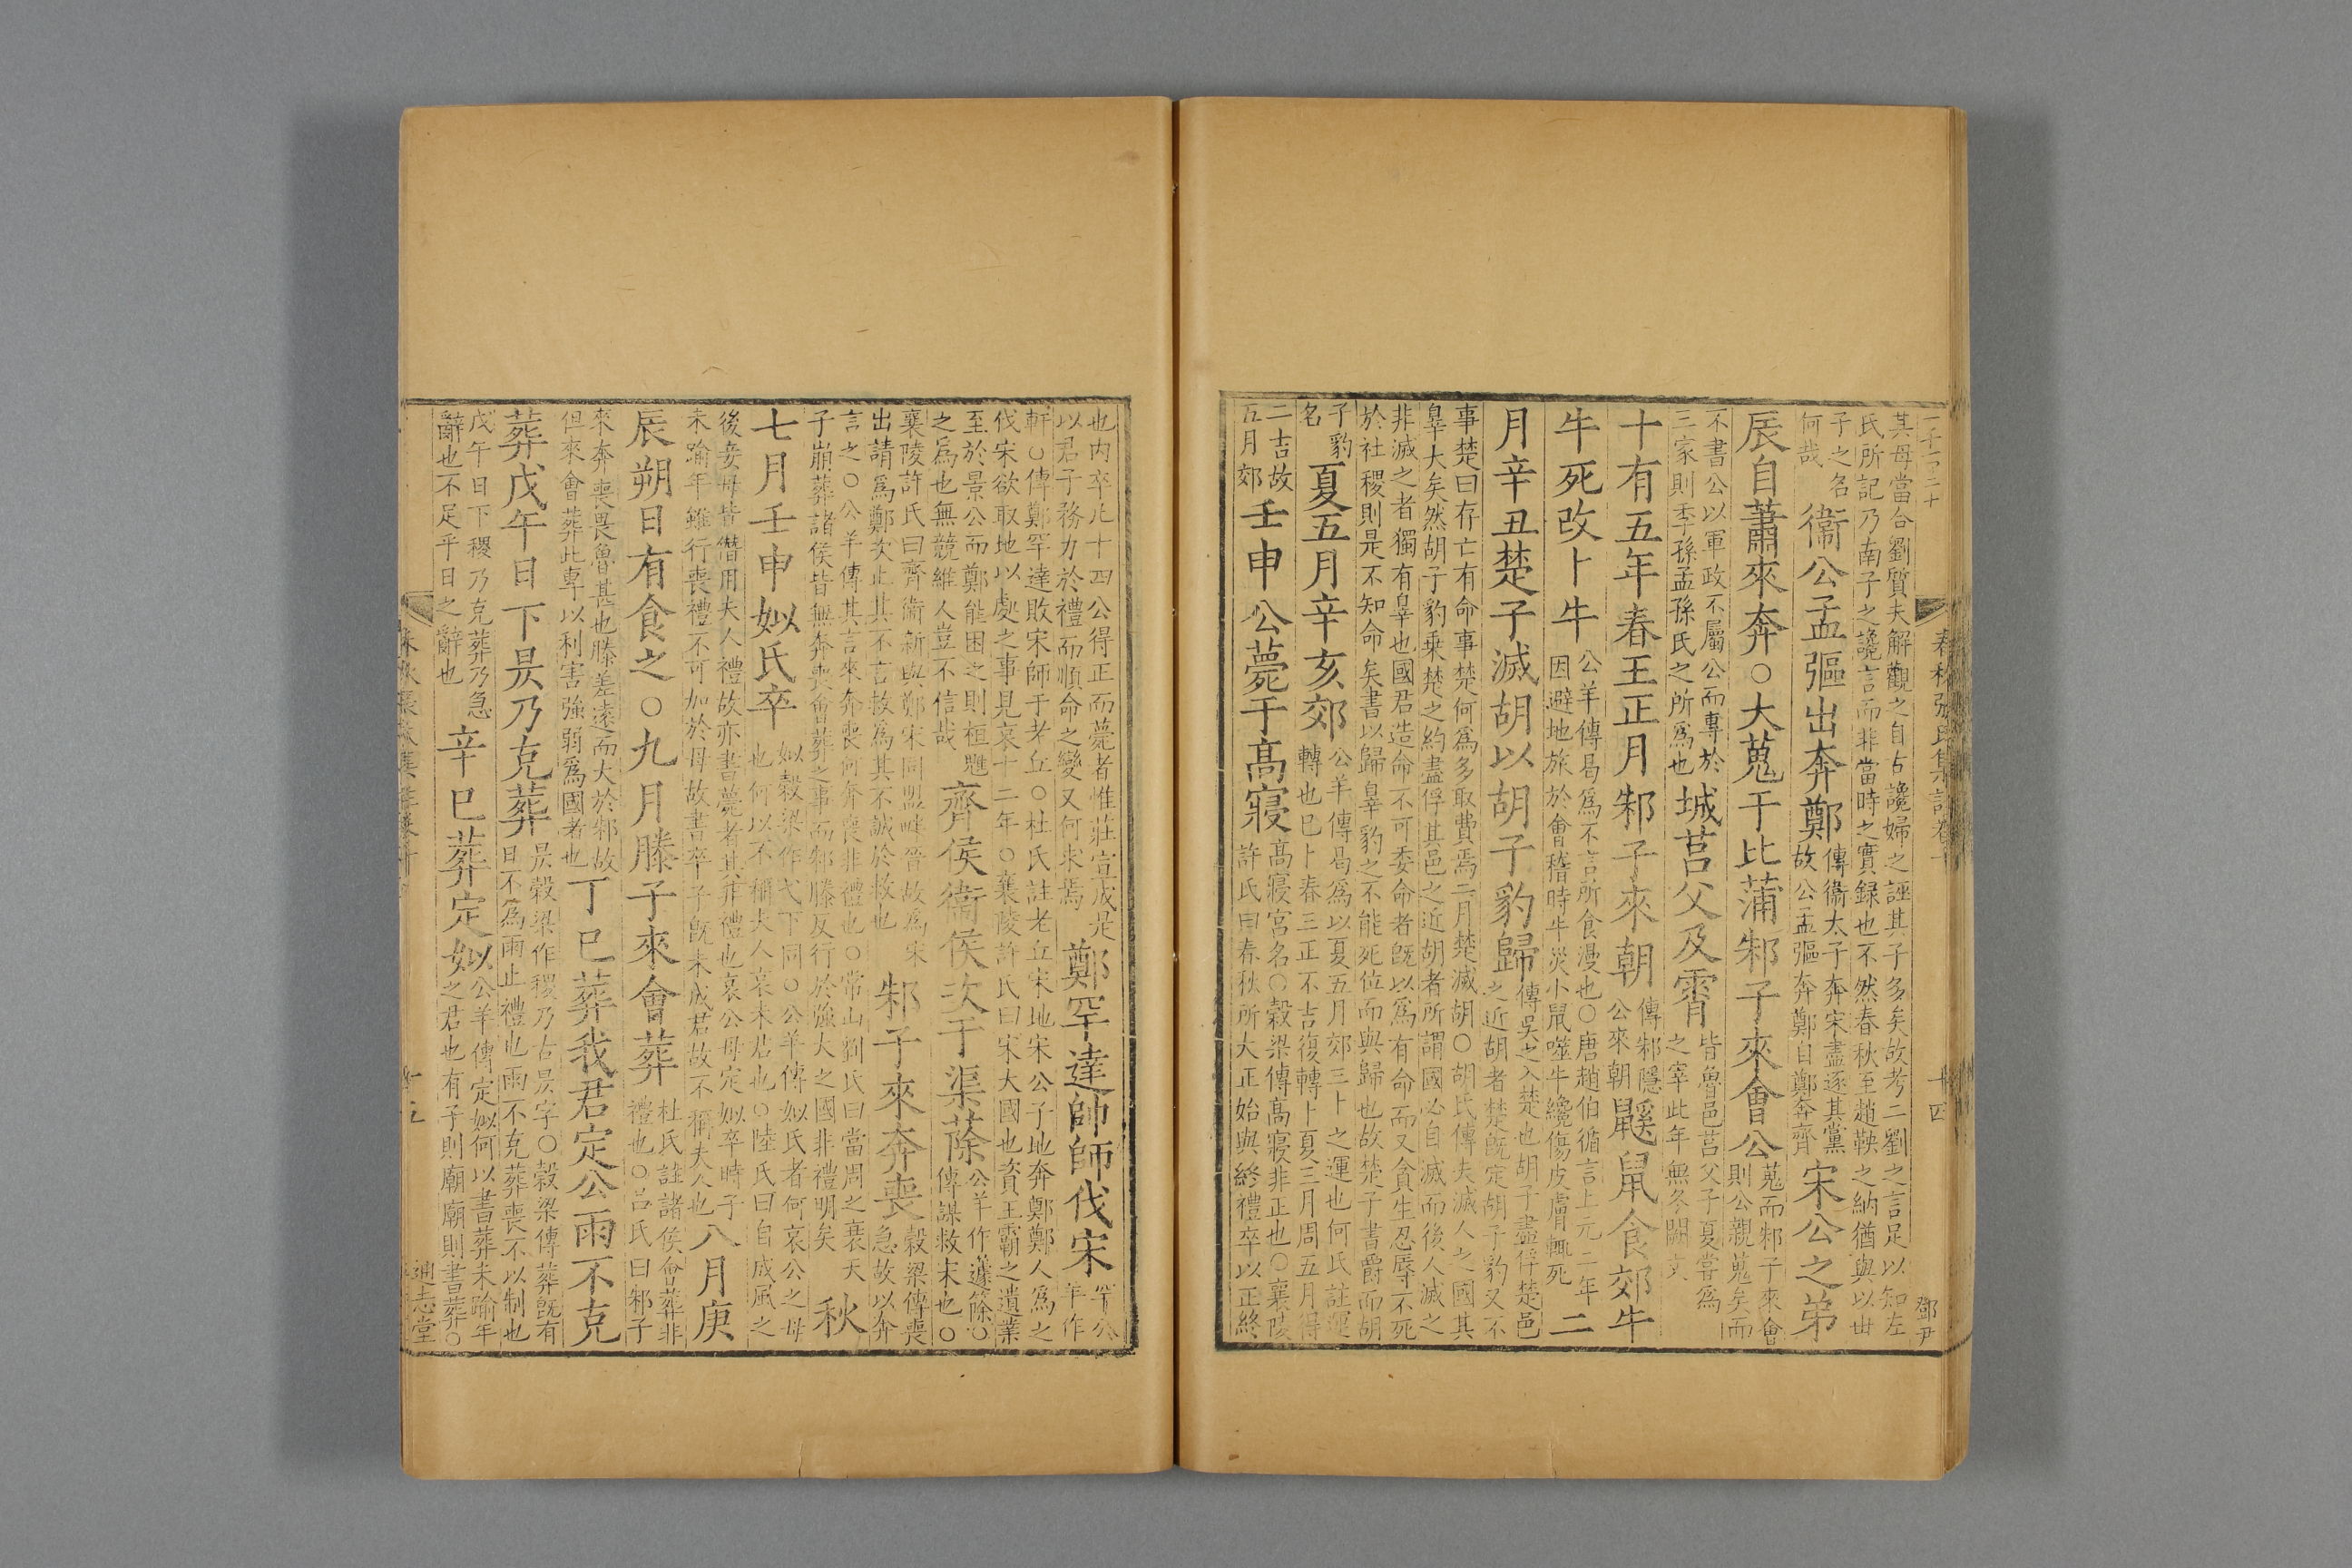 其母當合劉質夫解觀之自古讒婦之誣其子多矣故考二劉之言足以知左
氏所記乃南子之讒言而非當時之實録也不然春秋至趙鞅之納猶與以世
子之名
何哉
衞公孟彄出奔鄭
傳衞太子奔宋盡逐其黨
故公孟彄奔鄭自鄭奔齊
宋公之弟
辰自蕭來奔○大蒐于比蒲邾子來會公
蒐而邾子來會
則公親蒐矣而
不書公以軍政不屬公而專於
三家則季孫孟孫氏之所爲也
城莒父及霄
皆魯邑莒父子夏嘗爲
之宰此年無冬闕文
十有五年春王正月邾子來朝
傳邾隱
公來朝
鼷鼠食郊牛
牛死改卜牛
公羊傳曷爲不言所食漫也○唐趙伯循言上元二年
因避地旅於會稽時牛災小鼠噬牛纔傷皮膚輒死
二
月辛丑楚子滅胡以胡子豹歸
傳吳之入楚也胡子盡俘楚邑
之近胡者楚旣定胡子豹又不
事楚曰存亡有命事楚何爲多取費焉二月楚滅胡○胡氏傳夫滅人之國其
辠大矣然胡子豹乗楚之約盡俘其邑之近胡者所謂國必自滅而後人滅之
非滅之者獨有辠也國君造命不可委命者旣以爲有命而又貪生忍辱不死
於社稷則是不知命矣書以歸辠豹之不能死位而與歸也故楚子書爵而胡
子豹
名
夏五月辛亥郊
公羊傳曷爲以夏五月郊三卜之運也何氏註運
轉也巳卜春三正不吉復轉卜夏三月周五月得
二吉故
五月郊
壬申公薨于髙寢
髙寢宮名○穀梁傳髙寢非正也○襄陵
許氏曰春秋所大正始與終禮卒以正終
春秋張氏集註卷十
十四
鄧尹
也内卒凡十四公得正而薨者惟莊宣成是
以君子務力於禮而順命之變又何求焉
鄭罕達帥師伐宋
罕公
羊作
軒○傳鄭罕達敗宋師于老丘○杜氏註老丘宋地宋公子地奔鄭鄭人爲之
伐宋欲取地以處之事見哀十二年○襄陵許氏曰宋大國也資王霸之遺業
至於景公而鄭能困之則桓魋
之爲也無競維人豈不信哉
齊侯衞侯次于渠蒢
公羊作籧篨○
傳謀救宋也○
襄陵許氏曰齊衞新與鄭宋同盟
出請爲鄭次止其不言救爲其不誠於救也
邾子來奔喪
穀梁傳喪
急故以奔
言之○公羊傳其言來奔喪何奔喪非禮也○常山劉氏曰當周之衰天
子崩葬諸侯皆無奔喪會葬之事而邾滕反行於強大之國非禮明矣
秋
七月壬申姒氏卒
姒穀梁作弋下同○公羊傳姒氏者何哀公之母
也何以不稱夫人哀未君也○陸氏曰自成風之
後妾母皆僭用夫人禮故亦書薨者其葬禮也哀公母定姒卒時子
未踰年雖行喪禮不可加於母故書卒子旣未成君故不稱夫人也
八月庚
辰朔日有食之○九月滕子來會葬
杜氏註諸侯會葬非
禮也○呂氏曰邾子
來奔喪畏魯甚也滕差遠而大於邾故
但來會葬此專以利害強弱爲國者也
丁巳葬我君定公雨不克
葬戊午日下昃乃克葬
昃穀梁作稷乃古昃字○穀梁傳葬旣有
日不爲雨止禮也雨不克葬喪不以制也
戊午日下稷乃克葬乃急
辭也不足乎日之辭也
辛巳葬定姒
公羊傳定姒何以書葬未踰年
之君也有子則廟廟則書葬○
十五
通志堂